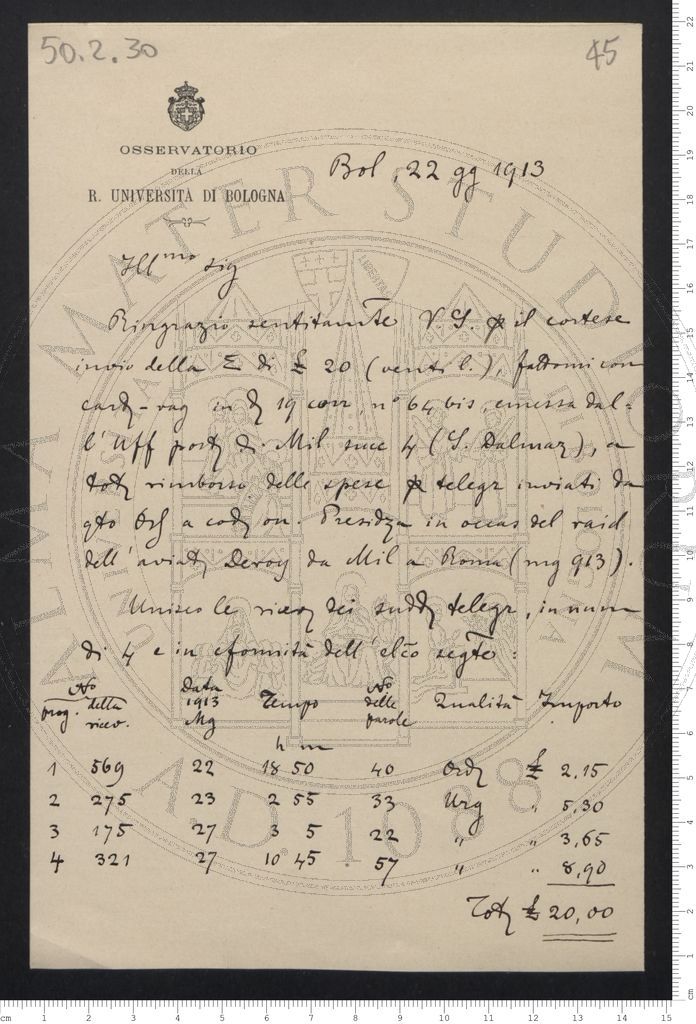 50.2.30
45
OSSERVATORIO
DELLA
R. UNIVERSITÀ DI BOLOGNA
Bol, 22 gg 1913
Ill.mo sig
Ringrazio sentitamte V. S. p il cortese
invio della Σ di £ 20 (venti l.), fattomi con
cart-vag in d 19 corr, n° 64 bis, emessa dal-
l'Uff post di Mil succ 4 (S. Dalmaz), a
tot rimborso delle spese p telegr inviati da
qto Oss a cod on. Presidza in occas del raid
dell'aviat Deroy da Mil a Roma (mg 913).
Unisco le ricev dei sudd telegr, in num
di 4 e in cformità dell'elco segte:
No prog. No della ricev. Data 1913 Mg Tempo No delle parole Qualità Importo
h m
1 569 22 18 50 40 Ord £ 2,15
2 275 23 2 55 33 Urg " 5,30
3 175 27 3 5 22 " " 3,65
4 321 27 10 45 57 " " 8,90
Tot £ 20,00
ALMA MATER STUDIORUM
A.D. 1088
LIBERTAS